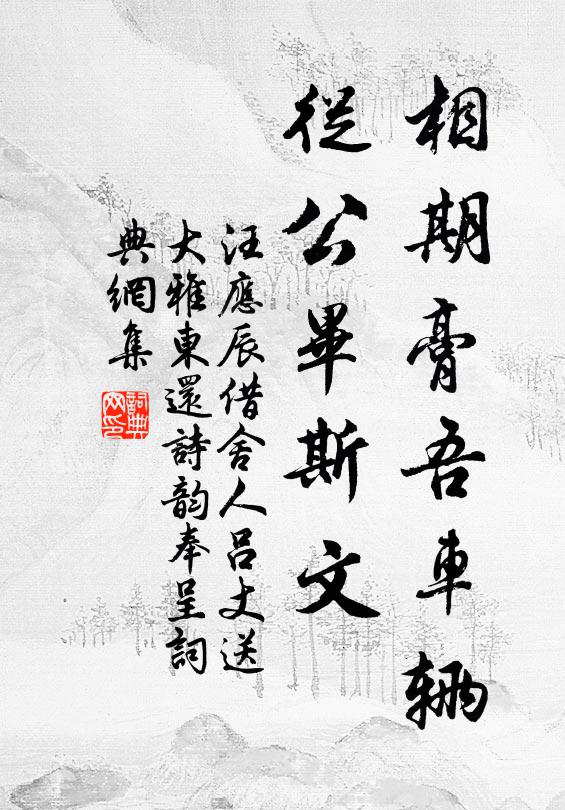 相期膏吾車輛
從公畢斯文
汪應辰借舍人呂丈送
大雅東還詩韵奉呈詞
典網集
詞典网印